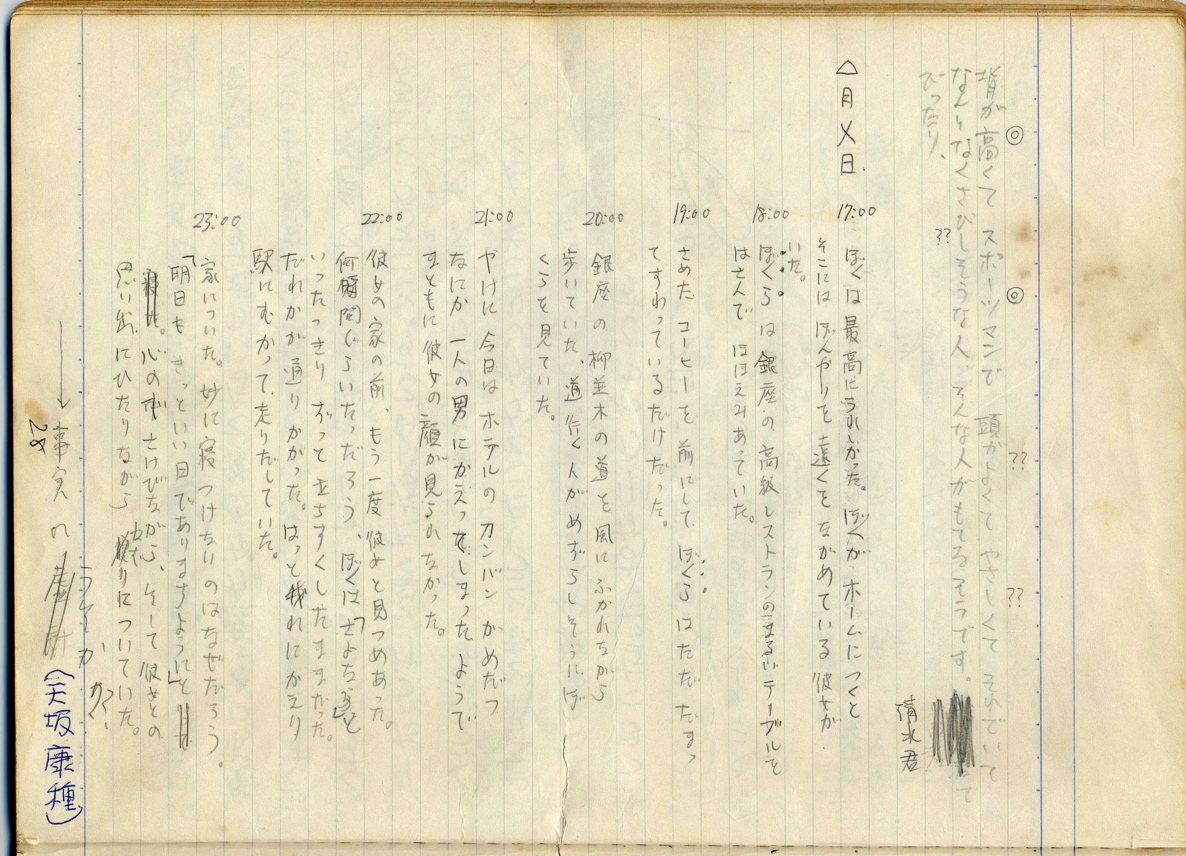 ◎ ◎ ?? ??
背が高くて スポーツマンで 頭がよくて やさしくて それでいて
なんとなくさびしそうな人、そんな人がもてるそうです。
ぴったり、
??
清水君
△月×日.
17:00 ぼくは最高にうれしかった。ぼくがホームにつくと
そこには ぼんやりと遠くをながめている彼女が
いた。
18:00 ぼくらは 銀座の高級レストランのまるいテーブルを
はさんで ほほえみあっていた。
19:00 さめた コーヒーを前にして ぼくらはただ だまっ
てすわっているだけだった。
20:00 銀座の柳並木の道を風にふかれながら
歩いていた、道行く人がめずらしそうに ぼ
くらを見ていた。
21:00 やけに今日は ホテルの カンバンがめだつ
なにか 一人の男にかえってしまったようで
まともに彼女の顔が見られなかった。
22:00 彼女の家の前、もう一度 彼女と見つめあった。
何時間ぐらいたっただろう、ぼくは「さよなら」と
いったっきり ずっと立ちすくしたままだった。
だれかが通りかかった。はっと我れにかえり
駅にむかって走りだしていた。
23:00 家についた。妙に寝つけないのはなぜだろう。
「明日も きっといい日でありますように」と
心の中でさけびながら、そして彼女との
思い出にひたりながら 眠りについていた。
→事実の
うそ
28
(大坂康種)